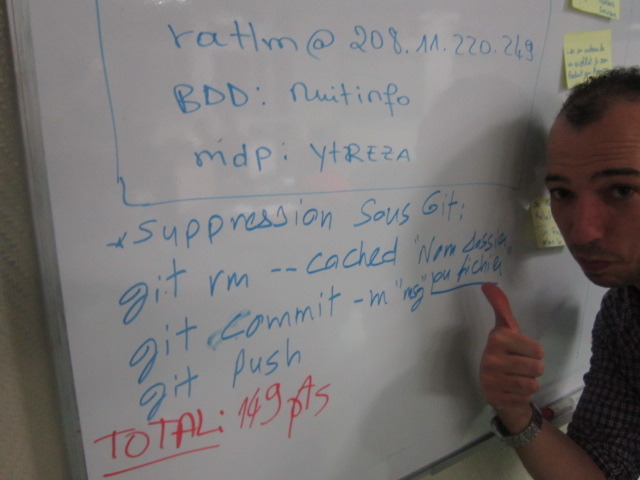 ratlm@208.11.220.249
BDD: nuitinfo
mdp: YtREZA
* Suppression Sous Git:
git rm --cached "Nom dossier"
ou fichier
git commit -m "msg"
git push
TOTAL: 149 pts